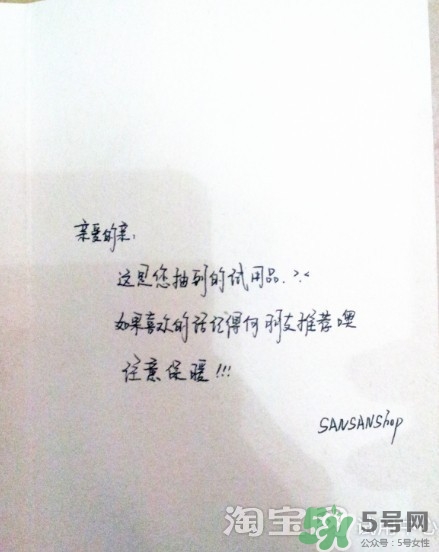 亲爱的亲:
这是您抽到的试用品.>.<
如果喜欢的话记得向朋友推荐噢
注意保暖!!!
SANSANShop
淘宝
5号网
公众号：5号女性